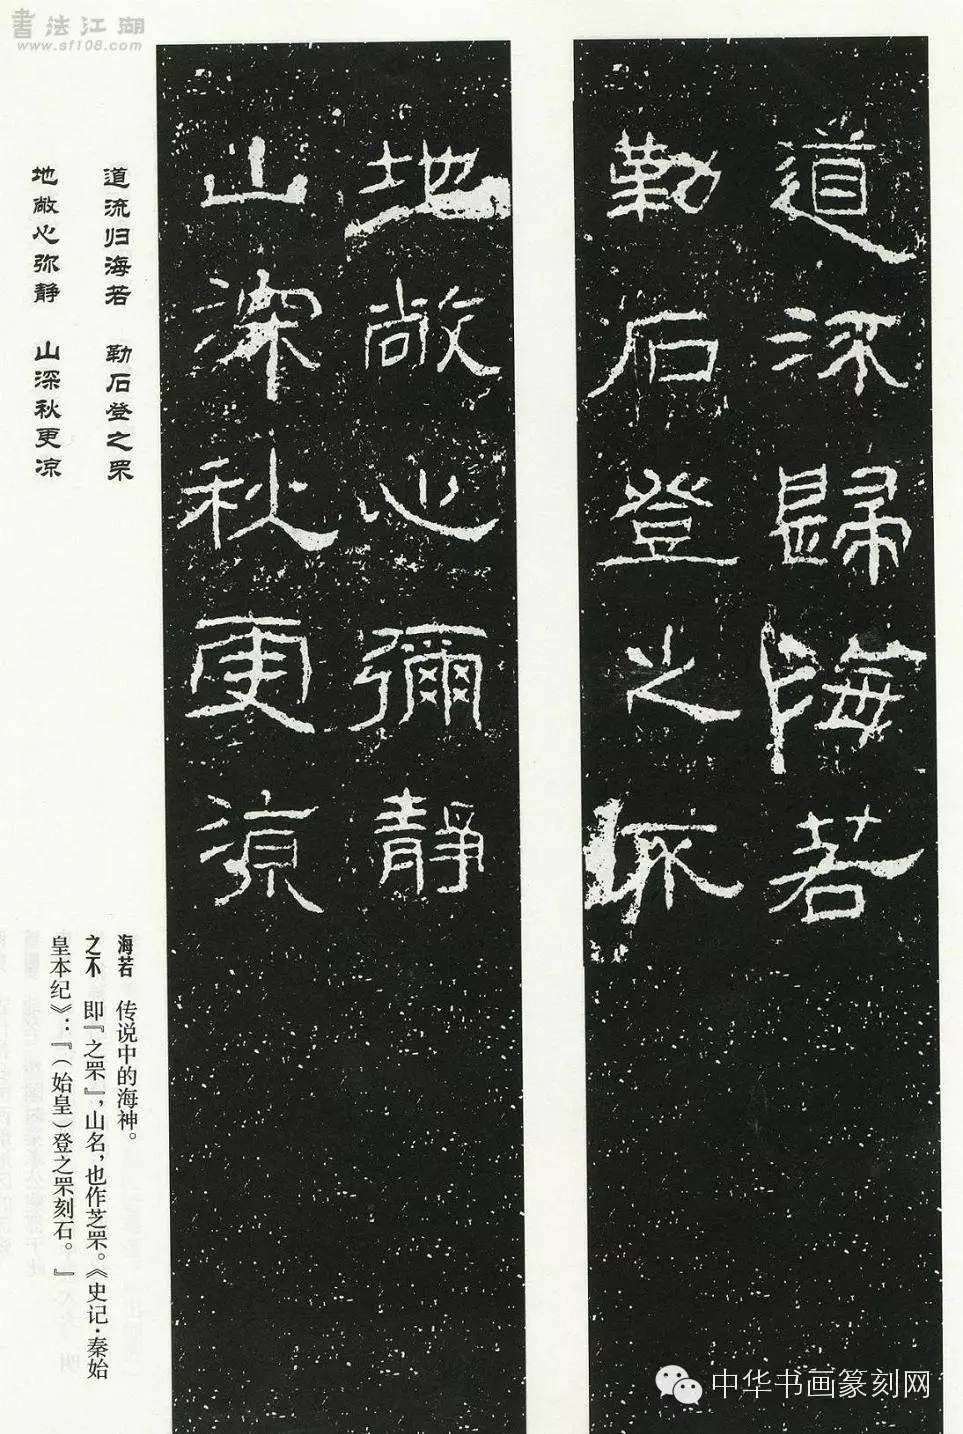 書法江湖
www.sf108.com
道流歸海若
勒石登之罘
地敞心彌靜
山深秋更涼
道流归海若 勒石登之罘
地敞心弥静 山深秋更凉
海若 传说中的海神。
之不 即『之罘』，山名，也作芝罘。《史记·秦始
皇本纪》：『（始皇）登之罘刻石。』
中华书画篆刻网